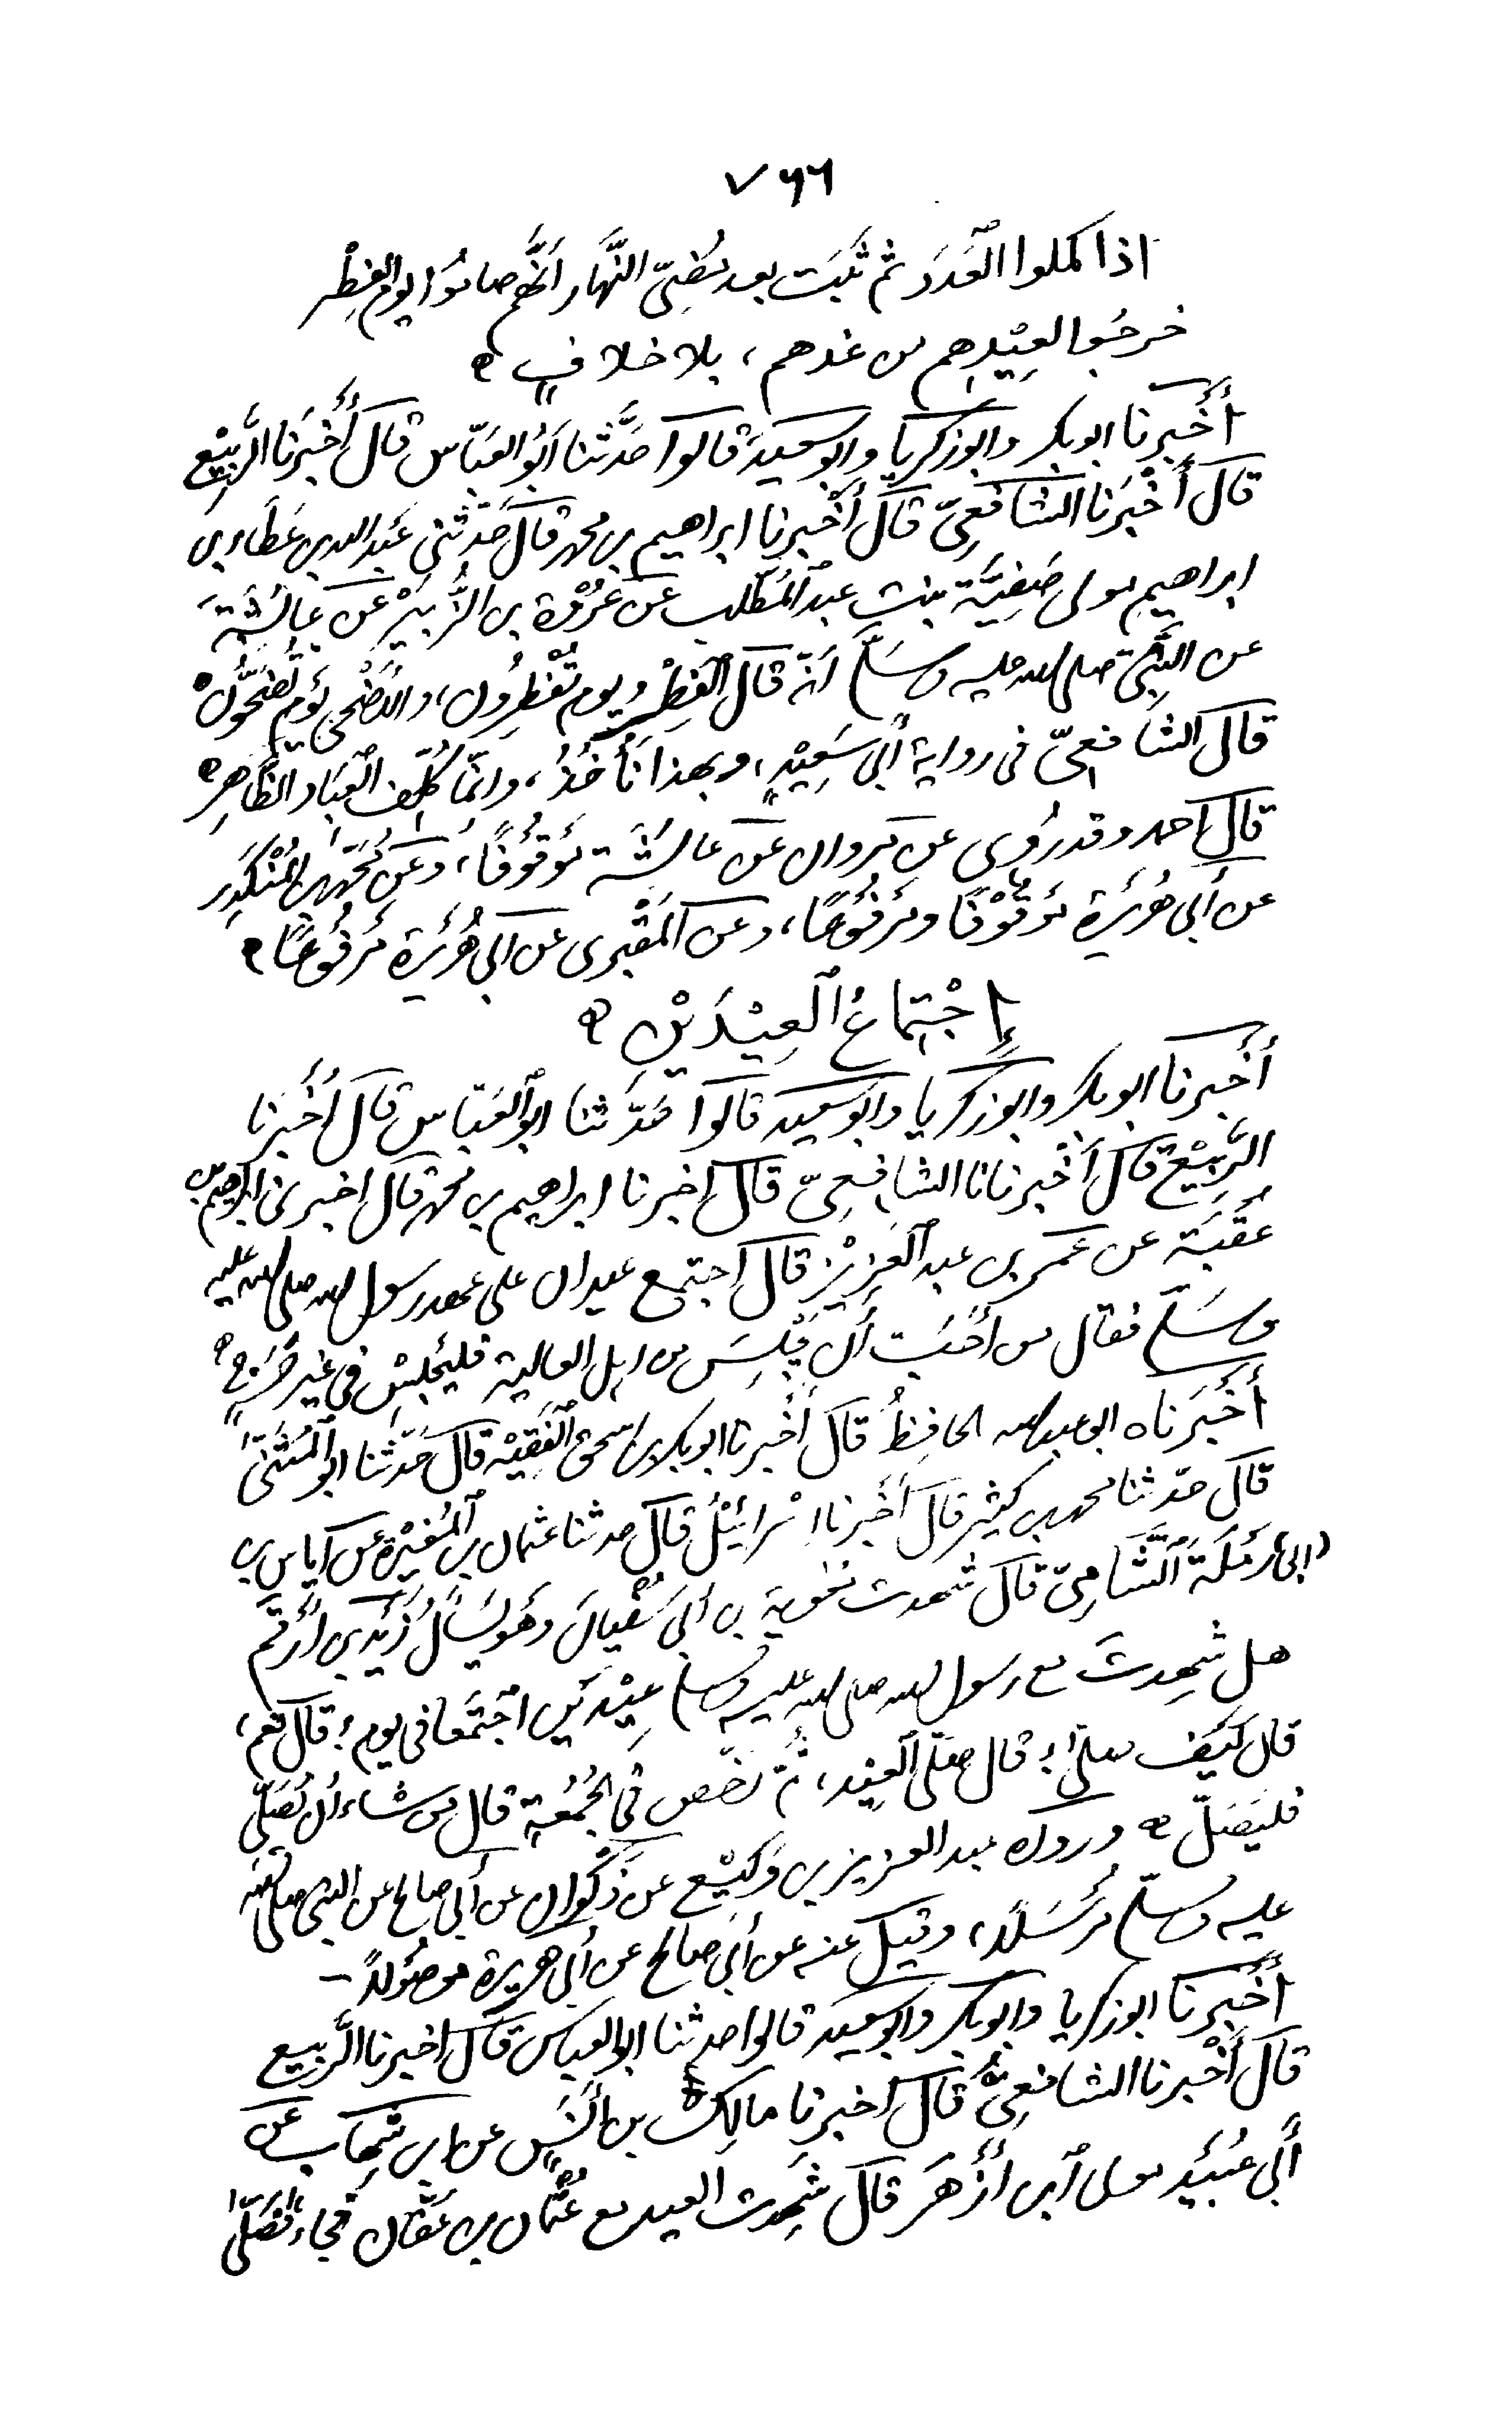 ٧٦٦
اذا كملوا العَدَدَ ثم ثبَتَ بعد مُضِىّ النَّهَار أنّهم صامُوا يوم الفِطْر
خرجُوا لعِيْدِهِم من غدهم، بلا خلافٍ ٥
أَخْبَرنا ابوبكر وابوزكريا وابوسعيد قالوا حَدَّثنا أبُو العَبّاس قال أَخْبَرَنا الرَّبِيْع
قال أَخْبَرَنا الشافِعِىّ قال أَخْبرنا ابراهيم بن محمد قال حَدّثنى عَبد الله بن عَطَاء بن
ابراهيم مولى صَفِيَّة بنت عبد المُطّلب عن عُرْوَة بن الزُّبَيْر عن عائِشَةَ
عن النَّبِىّ صلى الله عليه وسَلّم أنّه قال الفِطْر يوم تُفْطِرُون، والأضْحى يَوْم تُضَحُّون ٥
قال الشافِعىّ فى رواية أبى سَعِيْدٍ، وبهذا نَأْخُذُ، وانّما كُلِّف العِبَاد الظَّاهِر ٥
قال احمد وقد رُوِى عن مروان عن عائشَة مَوْقُوْفًا، وعن مُحَمّد بن المُنْكَدِر
عن أبى هُرَيْرة مَوْقُوْفًا ومَرْفُوْعًا، وعن المَقْبُرى عن ابى هُرَيْرة مَرْفُوْعًا ٥
إِجْتِمَاعُ العِيْدَيْن ٥
أَخْبرنا ابوبكر وابوزكريا وابوسعيد قالوا حَدَّثنا ابوالعَبّاس قال أَخْبَرَنا
الرَّبِيْع قال أَخْبرنا نا الشافِعِىّ قال اخبرنا ابراهيم بن محمد قال اخبرنى ابراهيم بن
عُقْبَة عن عمر بن عبد العَزِيْز قال اجتمع عيدان على عهد رسول الله صلى الله عليه
وسَلّم فقال من أَحَبّ أَن يَجْلِسَ من اهل العالية فليَجْلِسْ فى غير حَرَجٍ ٥
أَخْبَرناه ابوعبدالله الحافِظُ قال أَخْبرنا ابوبكر بن اسحق الفَقِيْه قال حَدّثنا ابو المُثَنّى
قال حدّثنا محمد بن كثير قال أَخْبرنا اسْرائِيْلُ قال حدثنا عثمان بن المُغِيْرَة عن اياس بن
(ابى) رَمْلَة الشَّامِىّ قال شهدت معٰوية بن أبى سُفْيان وهُوَ يَسأَلُ زَيْد بن أَرْقَم
هل شَهِدتَ مع رسول الله صلى الله عليه وسلّم عِيْدَيْن اجْتَمَعا فى يوم؟ قال نعم،
قال كَيْف صلى؟ قال صلّى العِيْد، ثُمّ رَخّص فى الجُمُعة قال من شاء أن يُصَلّى
فليُصَلّ ٥ ورواه عبد العزيز بن رُفَيْع عن ذَكْوان عن أبى صالح عن النبى صلى الله
عليه وسلّم مُرْسَلًا، وقيل عنه عن أبى صالح عن أبى هريرة موصُوْلًا -
أَخْبرنا ابوزكريا وابوبكر وابوسعيد قالوا حدثنا ابو العباس قال اخبرنا الرَّبيع
قال أَخْبرنا الشافِعِىُّ قال اخبرنا مالِك بن أَنَسٍ عن ابن شِهَاب عن
أبى عُبَيْد مولى ابن أَزْهَر قال شَهِدت العيد مع عُثْمان بن عَفّان فجاء فصَلّى